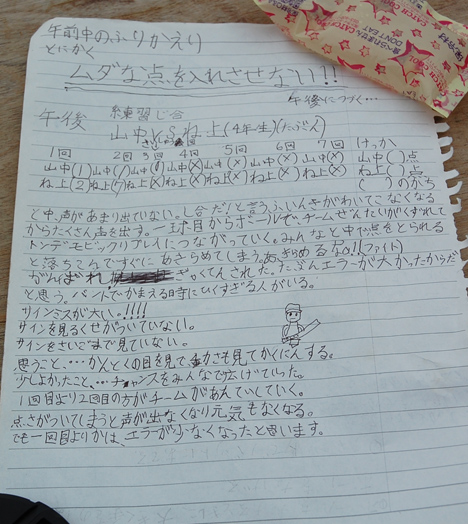 午前中のふりかえり
とにかく
ムダな点を入れさせない!!
午後につづく…
午後
練習じ合
山中VSね上(4年生)(たぶん)
1回 2回 3回 4回 5回 6回 7回 けっか
山中(1) 山中(1) 山中 山中(×) 山中(×) 山中(×) 山中(×) 山中( )点
ね上(2) ね上 ね上(×) ね上(×) ね上(×) ね上(×) ね上(×) ね上( )点
( )のかち
と中、声があまり出ていない。し合だ!と言うふいんきがわいてこなくなる
からたくさん声を出す。一球目からボールで、チームぜんたいがくずれて
トンデモビックリプレイにつながっていく。みんなと中で点をとられる
と落ちこんですぐにあきらめてしまう。あきらめるな!!(ファイト)
がんばれ くんされた。たぶんエラーが大かったからだ
と思う。バントでかまえる時にひくすぎる人がいる。
サインミスが大い。!!!!
サインを見るくせがついていない。
サインをさいごまで見ていない。
思うこと、…かんとくの目を見て、 も見てかくにんする。
少しよかったこと、…チャンスをみんなで広げていった。
1回目より2回目の方がチームがあんていしていく。
点さがついてしまうと声が出なくなり元気もなくなる。
でも一回目よりかは、エラーが少なくなったと思います。
CATCH COR
DON'T EAT